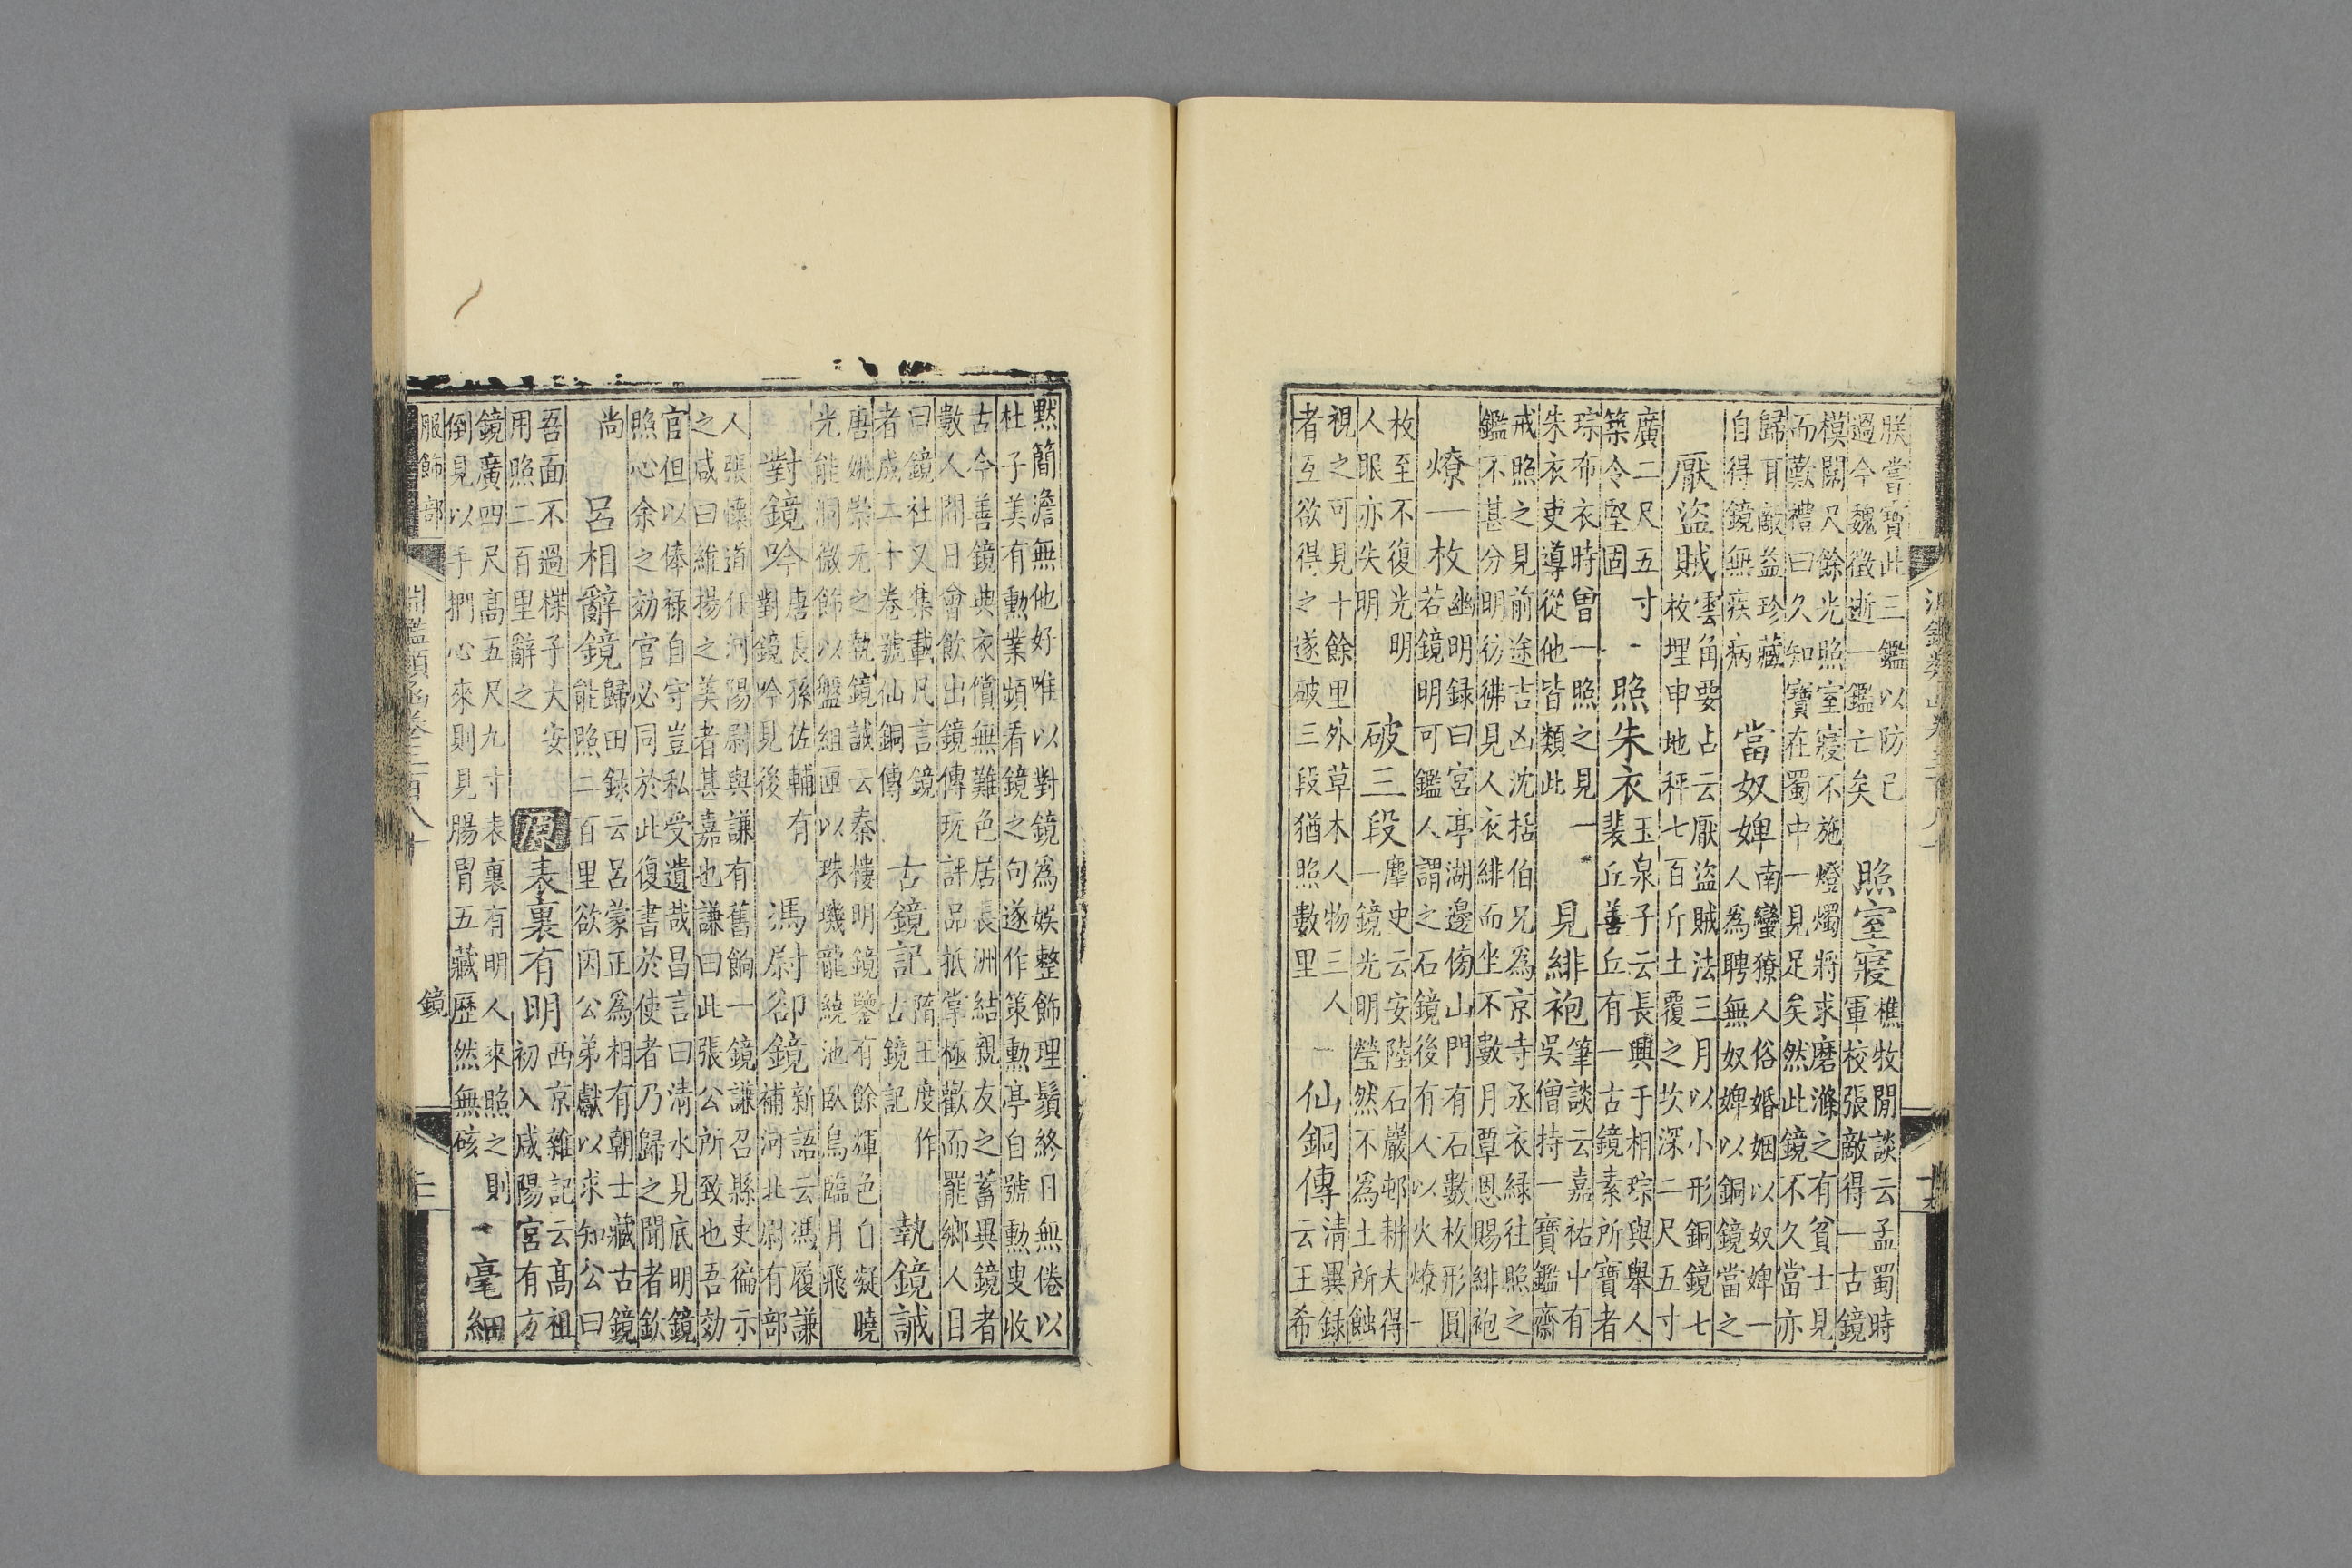 朕當寶此三鑑以防己
過今魏徵逝一鑑亡矣
照室寢
樵牧閒談云孟蜀時
軍校張敵得一古鏡
模闊尺餘光照室寢不施燈燭將求磨滌之有貧士見
而歎禮曰久知寶在蜀中一見足矣然此鏡不久當亦
歸耳敵益珍藏
自得鏡無疾病
當奴婢
南蠻獠人俗婚姻以奴婢一
人爲聘無奴婢以銅鏡當之
厭盜賊
雲角要占云厭盜賊法三月以小形銅鏡七
枚埋申地秤七百斤土覆之坎深二尺五寸
廣二尺五寸
築令堅固
照朱衣
玉泉子云長興于相琮與舉人
裴丘善丘有一古鏡素所寶者
琮布衣時曾一照之見一
朱衣吏導從他皆類此
見緋袍
筆談云嘉祐中有
吳僧持一寶鑑齋
戒照之見前途吉凶沈括伯兄爲京寺丞衣綠往照之
鑑不甚分明彷彿見人衣緋而坐不數月覃恩賜緋袍
燎一枚
幽明録曰宮亭湖邊傍山門有石數枚形圓
若鏡明可鑑人謂之石鏡後有人以火燎一
枚至不復光明
人眼亦失明
破三段
麈史云安陸石巖邨耕夫得
一鏡光明瑩然不爲土所蝕
視之可見十餘里外草木人物三人
者互欲得之遂破三段猶照數里
仙銅傳
清異録
云王希
黙簡澹無他好唯以對鏡爲娛整飾理鬚終日無倦以
杜子美有勳業頻看鏡之句遂作策勳亭自號勳叟收
古今善鏡典衣償無難色居長洲結親友之蓄異鏡者
數人閒日會飲出鏡傳玩評品抵掌極歡而罷鄉人目
曰鏡社又集載凡言鏡
者成二十卷號仙銅傳
古鏡記
隋王度作
古鏡記
執鏡誡
唐姚崇元之執鏡誡云秦樓明鏡鑒有餘輝色自凝曉
光能洞微飾以盤組匣以珠璣龍繞池臥烏臨月飛
對鏡吟
唐長孫佐輔有
對鏡吟見後
馮尉卻鏡
新語云馮履謙
補河北尉有部
人張懷道任河陽尉與謙有舊餉一鏡謙召縣吏徧示
之咸曰維揚之美者甚嘉也謙曰此張公所致也吾効
官但以俸禄自守豈私受遺哉昌言曰清水見底明鏡
照心余之効官必同於此復書於使者乃歸之聞者欽
尚
呂相辭鏡
歸田録云呂蒙正爲相有朝士藏古鏡
能照二百里欲因公弟獻以求知公曰
吾面不過楪子大安
用照二百里辭之
原
表裏有明
西京雜記云高祖
初入咸陽宮有方
鏡廣四尺高五尺九寸表裏有明人來照之則
倒見以手捫心來則見腸胃五藏歷然無硋
一毫細
服飾部
鑑類函卷三百八十
鏡